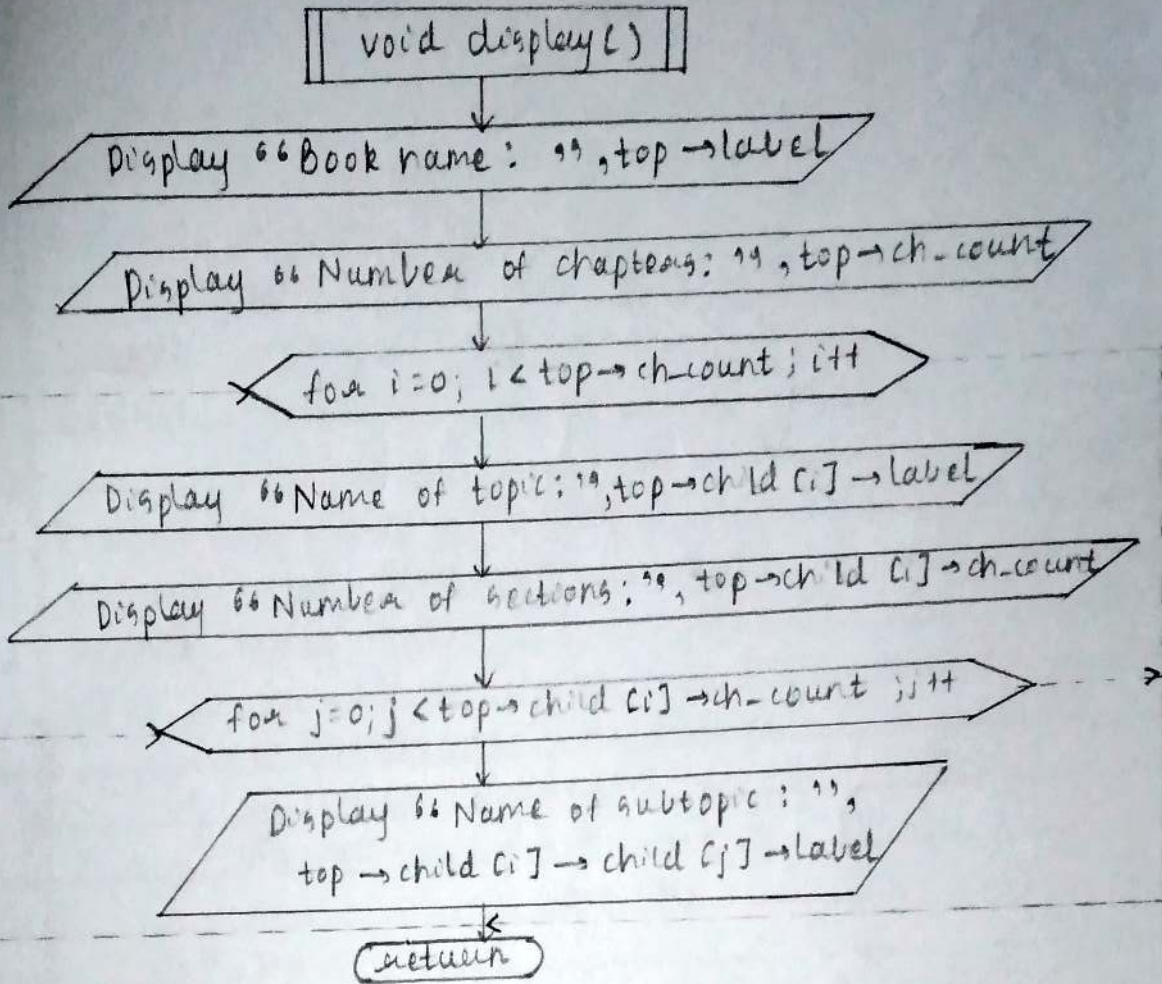 void display()
Display “Book name: ”, top→label
Display “Number of chapters: ”, top→ch_count
for i=0; i < top→ch_count; i++
Display “Name of topic: ”, top→child [i] →label
Display “Number of sections: ”, top→child [i] →ch_count
for j=0; j < top→child [i] →ch_count ; j++
Display “Name of subtopic : ”,
top →child [i] → child [j] →label
return